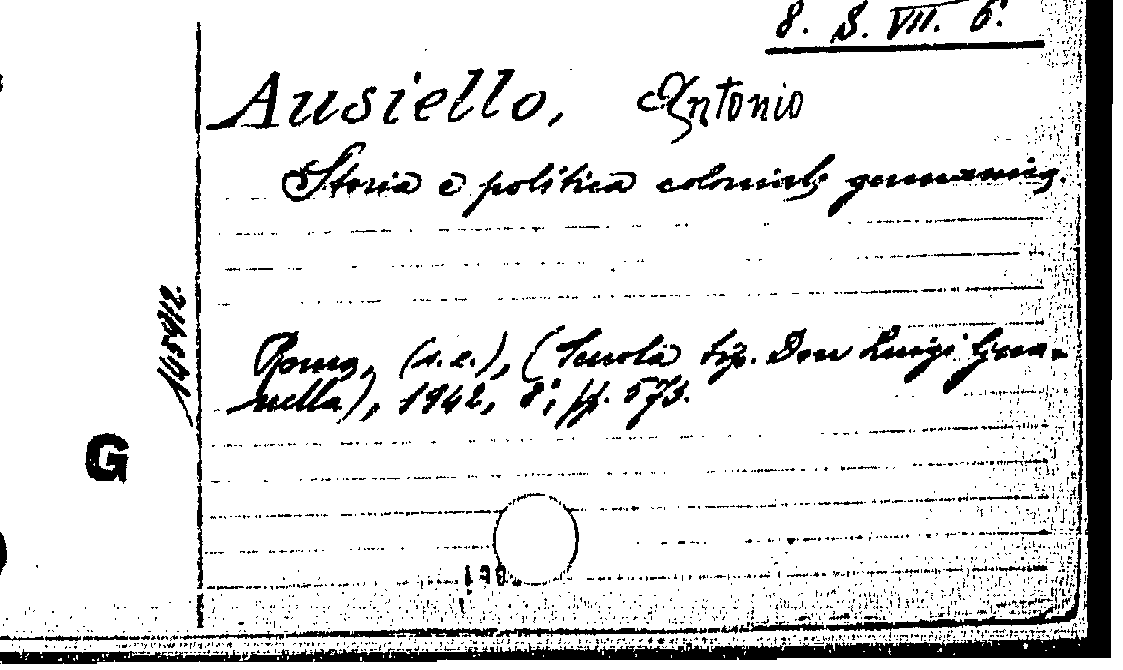 8. S. VII. 6.
Ausiello, Antonio
Storia e politica coloniale germanica.
Roma, (s.e.), (Scuola tip. Don Luigi Gua-
nella), 1942, 8°, pp. 573.
G